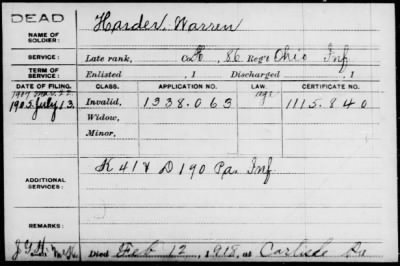 DEAD
NAME OF SOLDIER: Harder, Warren
SERVICE: Late rank, Co. 86 Reg't Ohio Inf
TERM OF SERVICE: Enlisted , 1 Discharged , 1
DATE OF FILING. CLASS. APPLICATION NO. LAW. CERTIFICATE NO.
1905 July 13. Invalid, 1338.063 1115.840
Widow,
Minor,
ADDITIONAL SERVICES: K 41 & D 190 Pa Inf
REMARKS:
Died Feb 12, 1918, at Carlisle Pa